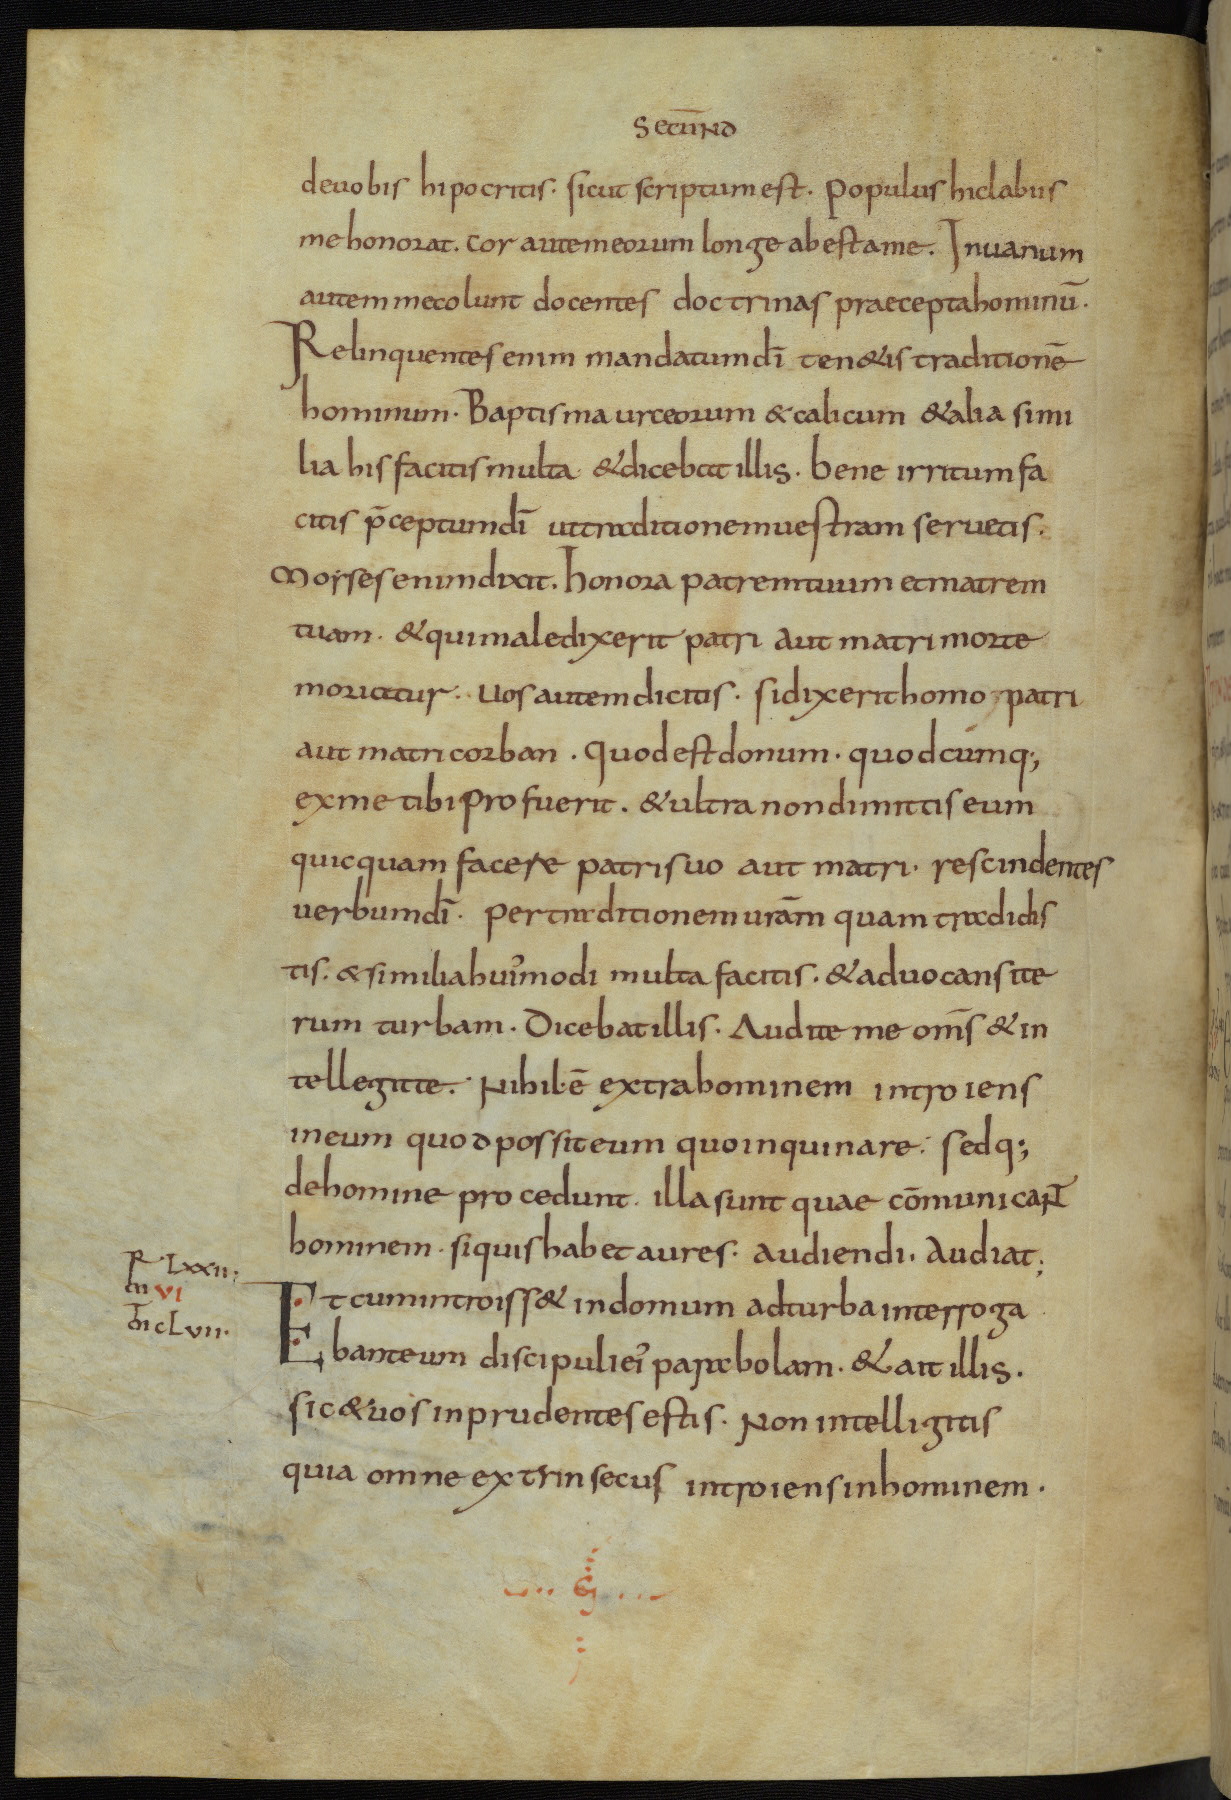 Secūnd
deuobis hipocritis. sicut scriptum est. Populus hic labiis
me honorat. cor autem eorum longe abest ame. Inuanum
autem me colunt docentes doctrinas praecepta hominū.
Relinquentes enim mandatum dī ten&is traditionē
hominum. Baptisma urceorum & calicum & alia simi
lia his facitis multa. & dicebat illis. bene irritum fa
citis p̄ceptum dī ut traditionem uestram seruetis.
Moyses enim dixit. honora patrem tuum et matrem
tuam. & qui maledixerit patri aut matri morte
moriatur. Uos autem dicitis. si dixerit homo patri
aut matri corban. Quod est donum. quodcumq;
ex me tibi profuerit. & ultra non dimittis eum
quicquam facere patri suo aut matri. rescindentes
uerbum dī. per traditionem urām quam tradidis
tis. & similia huī modi multa facitis. & aduocans ite
rum turbam. Dicebat illis. Audite me om̄s & in
tellegite. Nihil ē extra hominem introiens
in eum quod possit eum quoinquinare. sed q;
de homine procedunt. illa sunt quae cōmunicaNT
hominem. si quis habet aures. audiendi. Audiat;
R LXXII;
m VI
m̄ CLVII.
Et cum introiss& in domum ad turba interroga
bant eum discipuli eī parabolam. & ait illis.
sic & uos inprudentes estis. Non intelligitis
quia omne extrinsecus introiens in hominem.